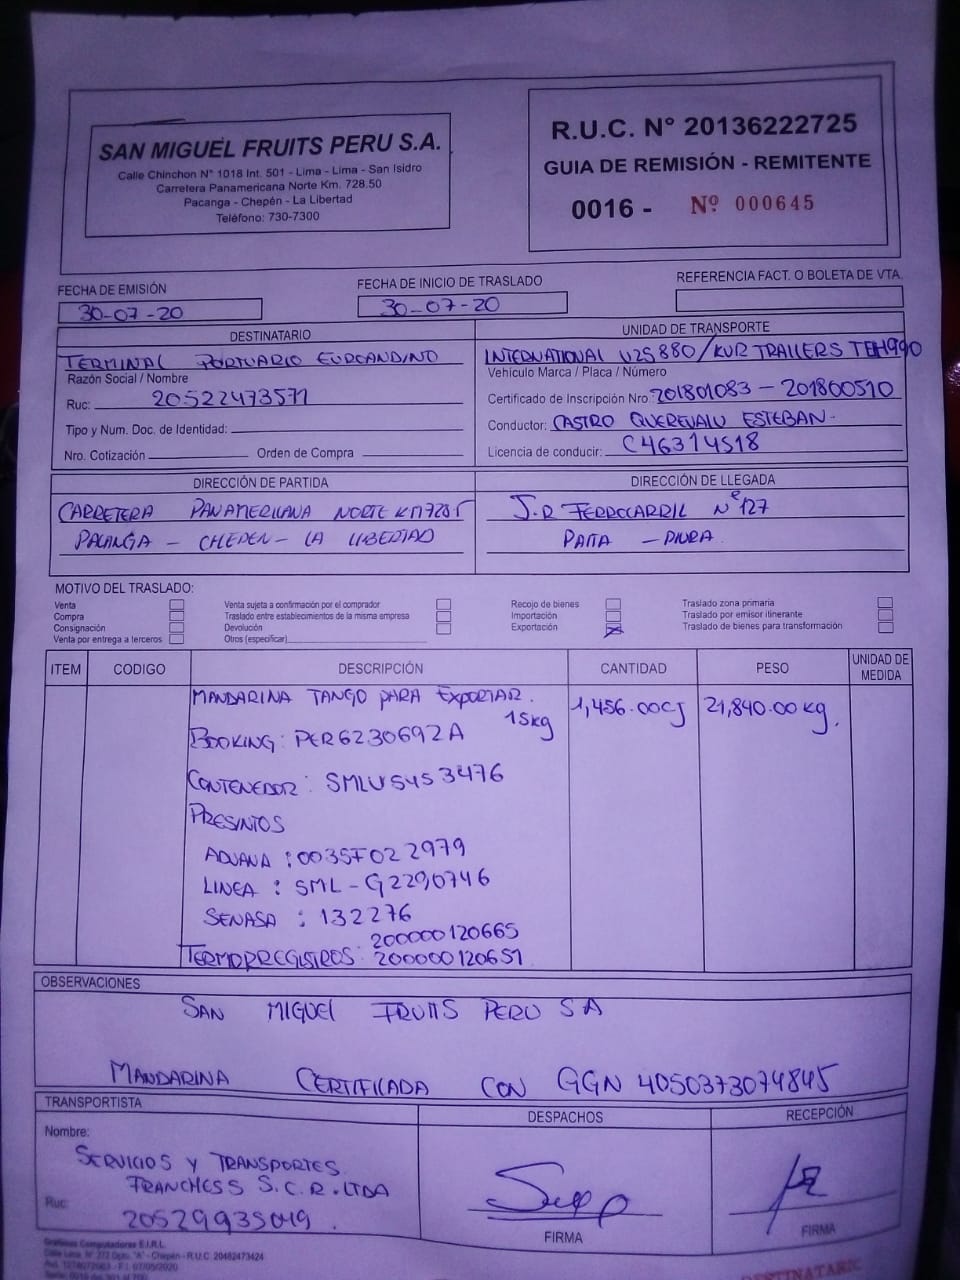 SAN MIGUEL FRUITS PERU S.A.
Calle Chinchon N° 1018 Int. 501 - Lima - Lima - San Isidro
Carretera Panamericana Norte Km. 728.50
Pacanga - Chepén - La Libertad
Teléfono: 730-7300
R.U.C. N° 20136222725
GUIA DE REMISIÓN - REMITENTE
0016 - Nº 000645
FECHA DE EMISIÓN
30-07-20
FECHA DE INICIO DE TRASLADO
30-07-20
REFERENCIA FACT. O BOLETA DE VTA.
DESTINATARIO
TERMINAL PORTUARIO EUROANDINO
Razón Social / Nombre
Ruc: 20522473571
Tipo y Num. Doc. de Identidad:
Nro. Cotización Orden de Compra
UNIDAD DE TRANSPORTE
INTERNATIONAL V2S880/KUR TRAILERS TEH990
Vehículo Marca / Placa / Número
Certificado de Inscripción Nro: 201801083 - 201800510
Conductor: CASTRO QUEREVALU ESTEBAN-
Licencia de conducir: C46314518
DIRECCIÓN DE PARTIDA
CARRETERA PANAMERICANA NORTE KM7285
PACANGA - CHEPEN - LA LIBERTAD
DIRECCIÓN DE LLEGADA
J.R FERROCARRIL Nº127
PAITA - PIURA
MOTIVO DEL TRASLADO:
Venta
Compra
Consignación
Venta por entrega a terceros
Venta sujeta a confirmación por el comprador
Traslado entre establecimientos de la misma empresa
Devolución
Otros (especificar)
Recojo de bienes
Importación
Exportación X
Traslado zona primaria
Traslado por emisor itinerante
Traslado de bienes para transformación
ITEM CODIGO DESCRIPCIÓN CANTIDAD PESO UNIDAD DE MEDIDA
MANDARINA TANGO PARA EXPORTAR. 1,456.00CJ 21,840.00 kg.
15kg
BOOKING: PER6230692A
CONTENEDOR: SMLU5453476
PRESINTOS
ADUANA : 0035F022979
LINEA : SML-G2290746
SENASA : 132276
200000120665
TERMORREGISTROS: 200000120651
OBSERVACIONES
SAN MIGUEL FRUITS PERU S A
MANDARINA CERTIFICADA CON GGN 4050373074845
TRANSPORTISTA
Nombre:
SERVICIOS Y TRANSPORTES
FRANCHESS S.C.R.LTDA
Ruc:
20529935049.
DESPACHOS
FIRMA
RECEPCIÓN
FIRMA
Graficos Computadores E.I.R.L.
R.U.C. 20482473424
DESTINATARIO